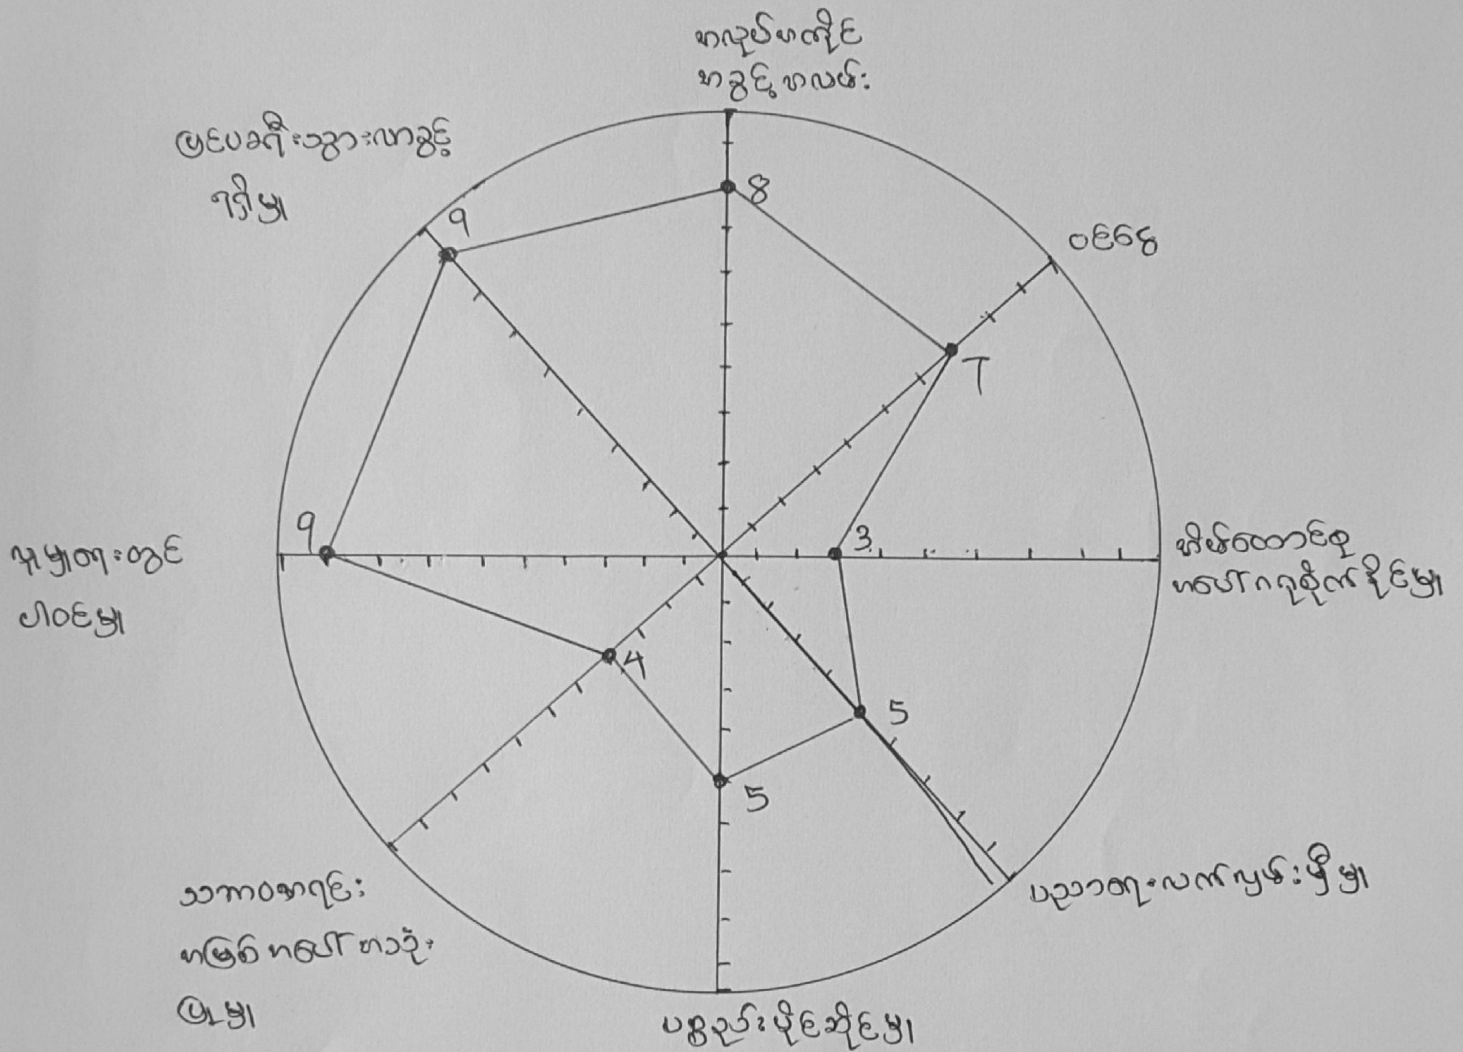 အလုပ်အကိုင်
အခွင့်အလမ်း
8
ဝင်ငွေ
7
အိမ်ထောင်စု
အပေါ်ဂရုစိုက်နိုင်မှု
3
ပညာရေးလက်လှမ်းမှီမှု
5
ပစ္စည်းပိုင်ဆိုင်မှု
5
သဘာဝအရင်း
အမြစ်အပေါ်အသုံး
ပြုမှု
4
လူမှုရေးတွင်
ပါဝင်မှု
9
ပြင်ပခရီးသွားလာခွင့်
ရရှိမှု
9